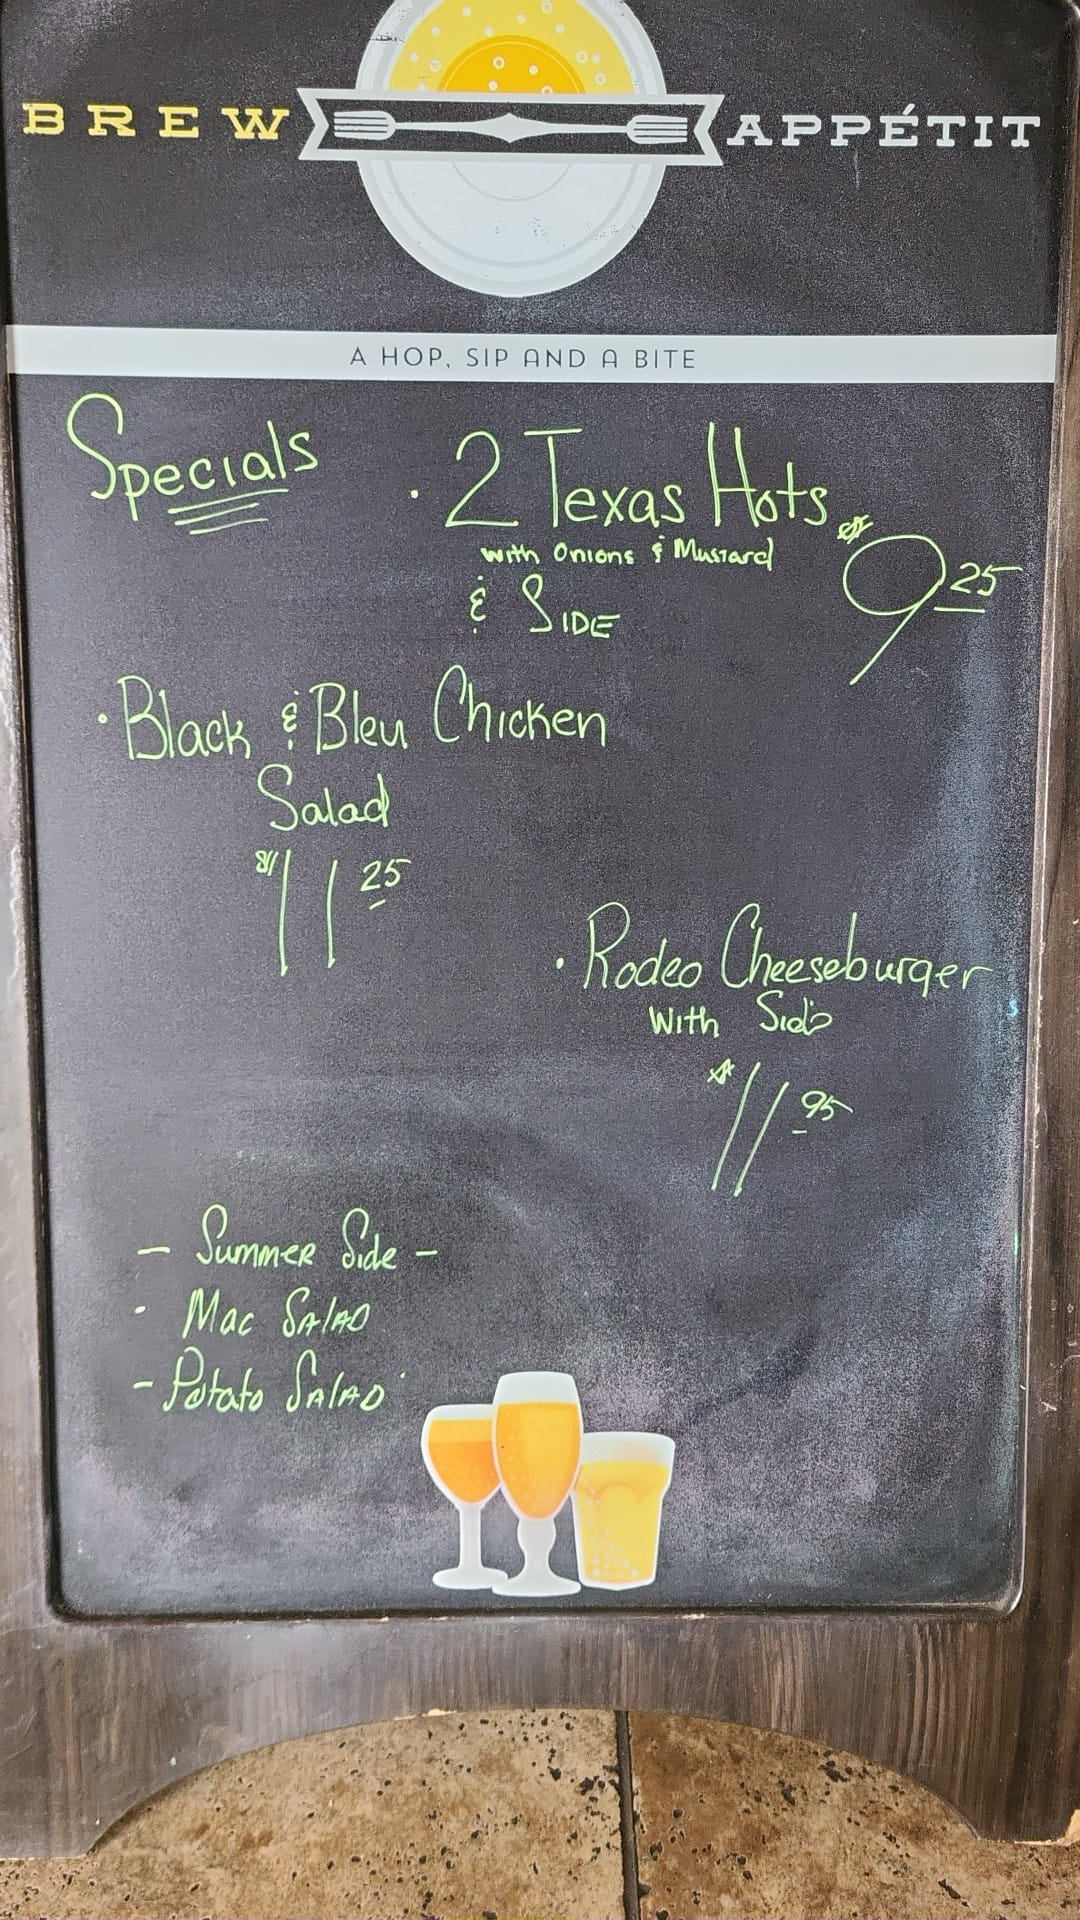 BREW APPÉTIT
A HOP, SIP AND A BITE
Specials
· 2 Texas Hots
with Onions & Mustard
& SIDE
$9.25
· Black & Bleu Chicken
Salad
$11.25
· Rodeo Cheeseburger
With Side
$11.95
- Summer Side -
· Mac Salad
- Potato Salad